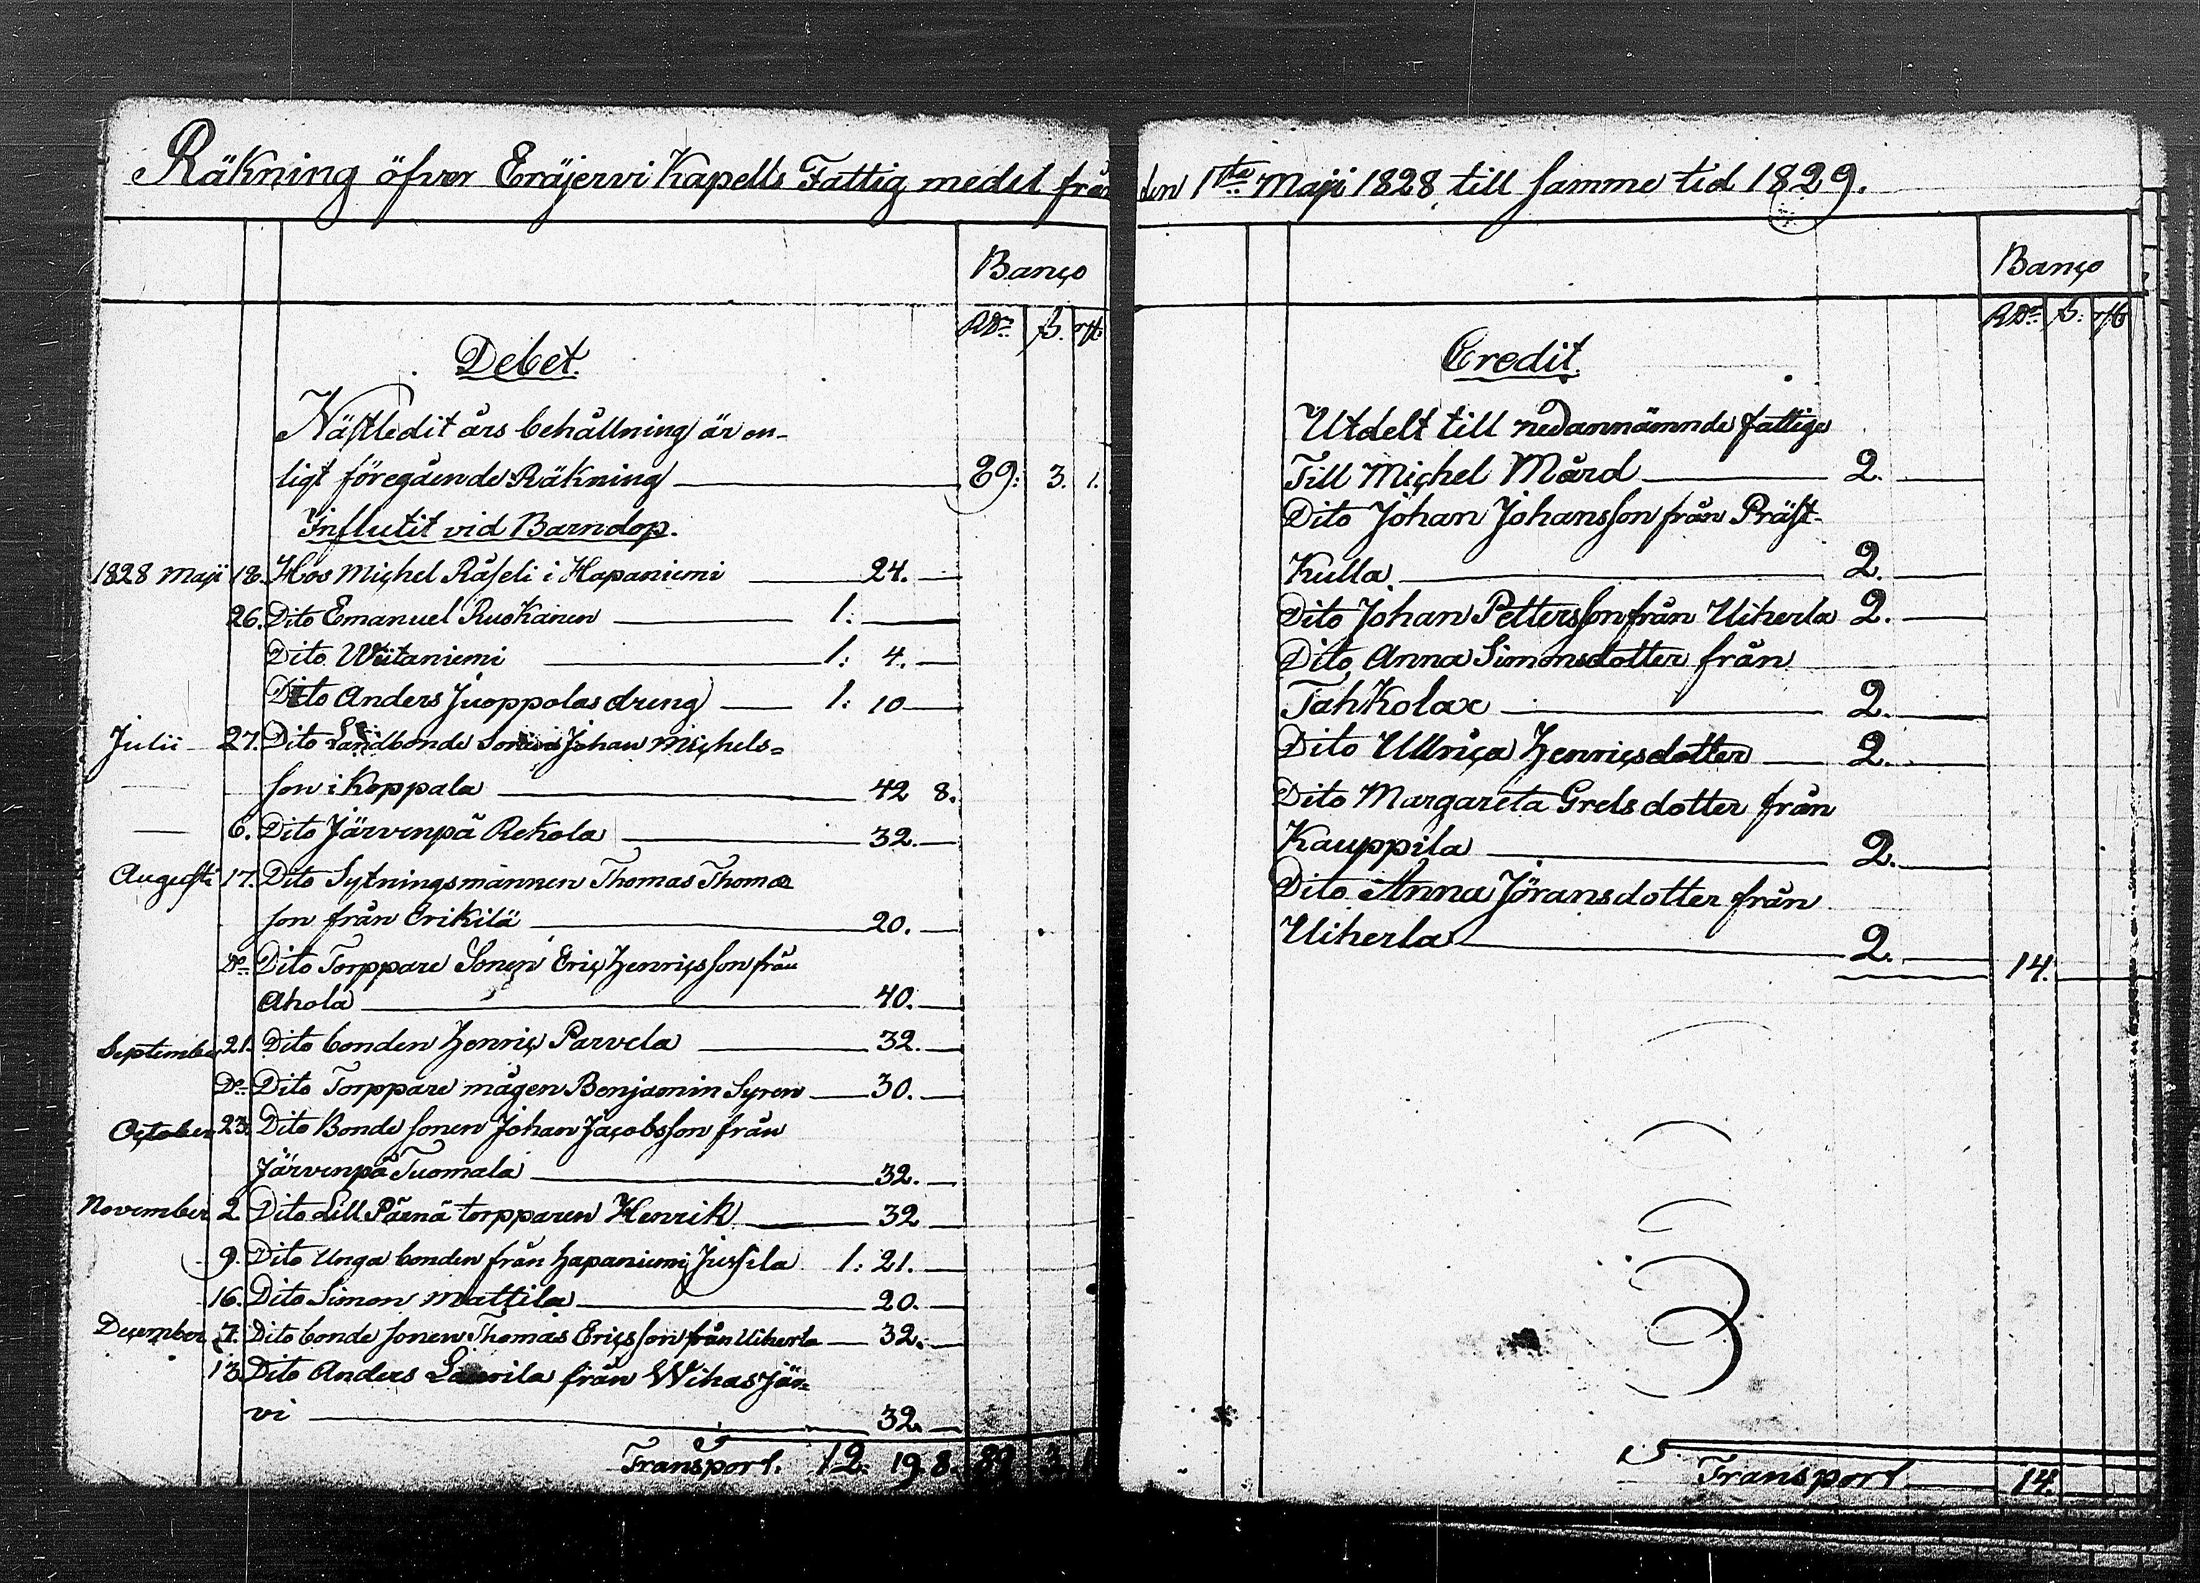 Räkning öfver Eräjervi Kapells Fattig medel från den 1ste Maji 1828 till samme tid 1829.
Banco
RDr ß. rst:
Debet.
Nästledit års behållning är en-
ligt föregående Räkning 89: 3. 1.
Influtit vid Barndop.
1828 Maji 18. Hos Michel Råseli i Hapaniemi 24.
26. Dito Emanuel Ruokanen 1:
Dito Wiitaniemi 1: 4.
Dito Anders Juoppolas dreng 1: 10
Julii 27. Dito Landbonde Sonen Johan Michels=
son i Koppala 42 8.
6. Dito Järvenpä Rekola 32.
Augusti 17. Dito Sytningsmannen Thomas Thomas
son från Erikilä 20.
Do Dito Torppare Sonen Eric Henricsson från
Ahola 40.
September 21. Dito bonden Henric Parvela 32.
Do Dito Torppare mågen Benjamin Syren 30.
October 23. Dito Bonde sonen Johan Jacobsson från
Järvenpä Tuomala 32.
November 2 Dito Lill Pärnä torpparen Henrik 32
9. Dito Unga bonden från Hapaniemi Jussila 1: 21.
16. Dito Simon Mattila 20.
December 7. Dito bonde sonen Thomas Ericsson från Uiherla 32.
13 Dito Anders Laurila från Wihasjär=
vi 32.
Transport. 12: 19 8. 89 3. 1
Banco
RDr ß: rst
Credit.
Utdelt till nedannämnde fattige
Till Michel Mård 2.
Dito Johan Johansson från Präst-
Kulla 2.
Dito Johan Pettersson från Uiherla 2.
Dito Anna Simonsdotter från
Tahkolax 2.
Dito Ullrica Henricsdotter 2.
Dito Margareta Grelsdotter från
Kauppila 2.
Dito Anna Jöransdotter från
Uiherla 2. 14.
Transport 14.